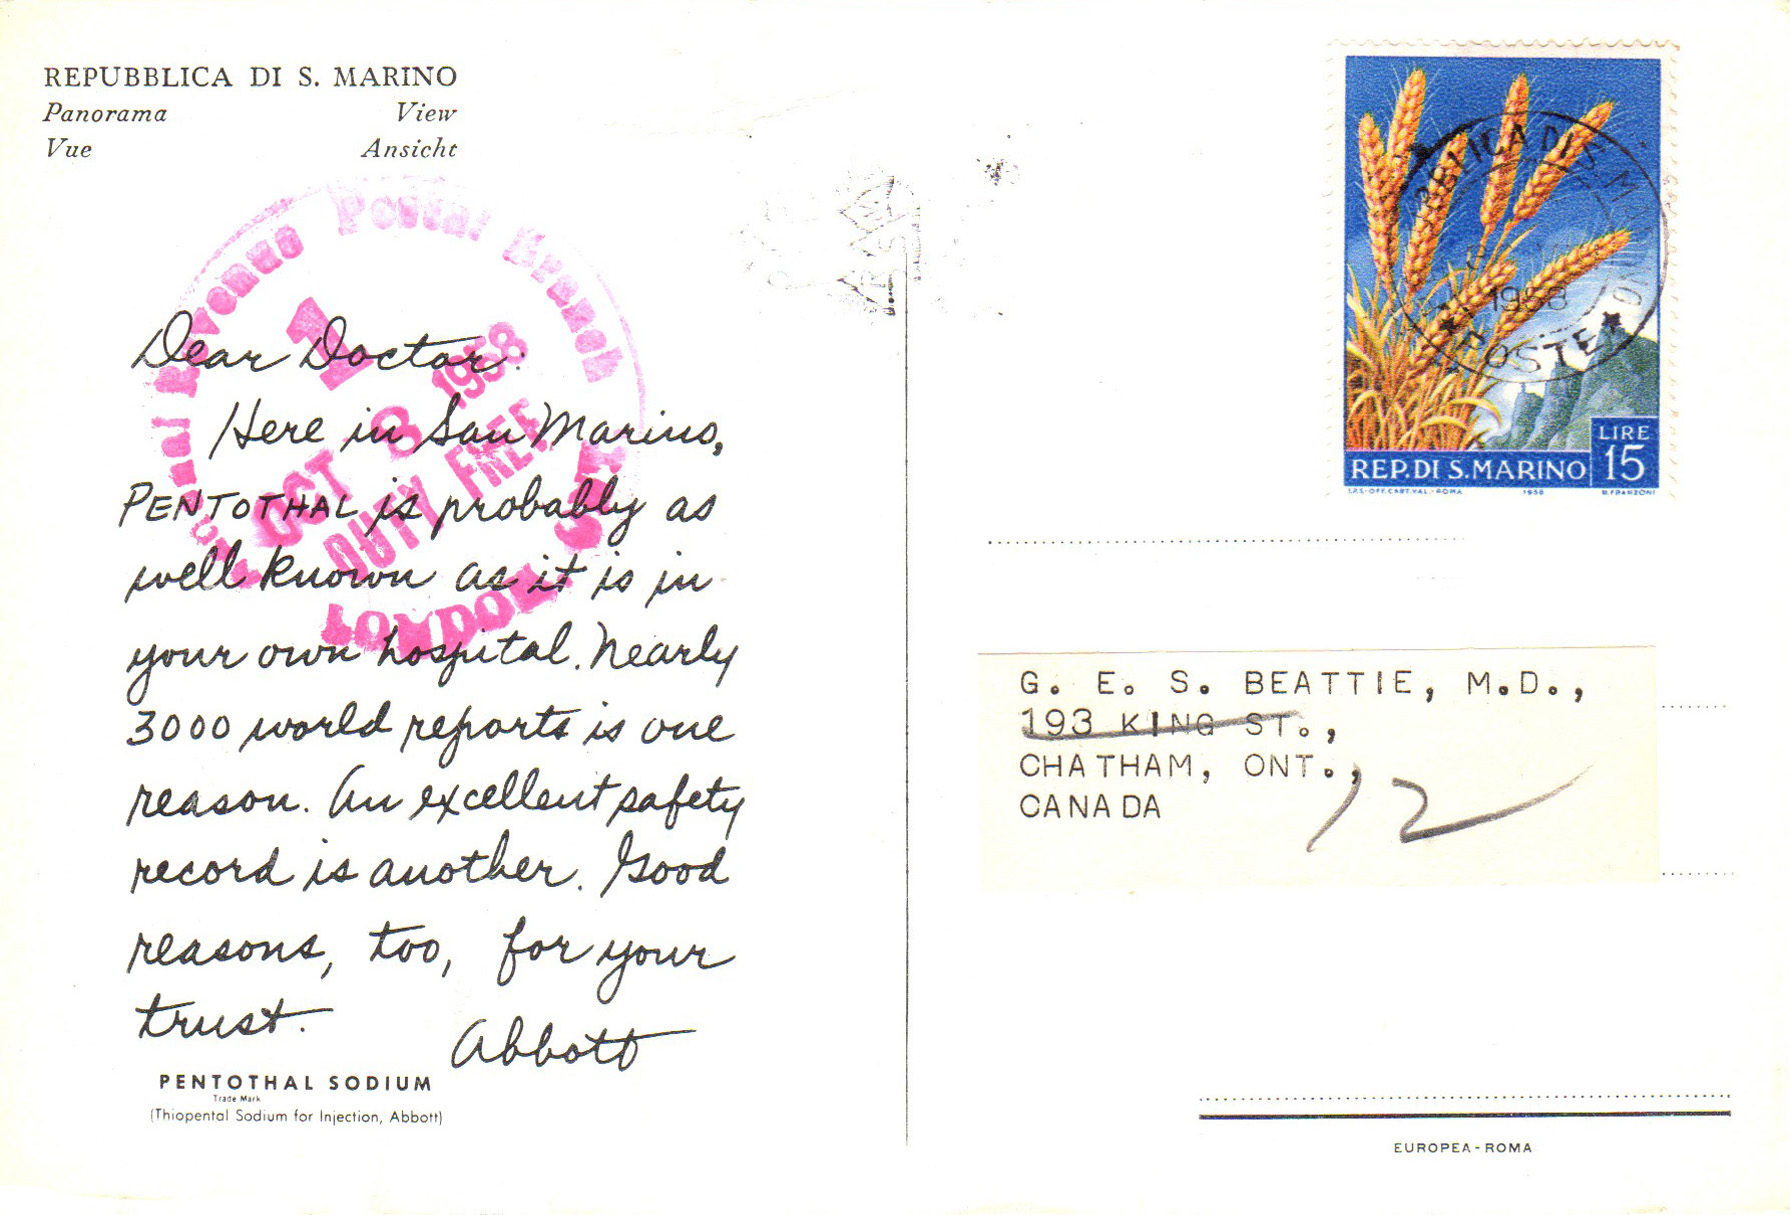 REPUBBLICA DI S. MARINO
Panorama View
Vue Ansicht
Postal Branch
OCT 8 1958
DUTY FREE
LONDON
Dear Doctor:
Here in San Marino,
PENTOTHAL is probably as
well known as it is in
your own hospital. Nearly
3000 world reports is one
reason. An excellent safety
record is another. Good
reasons, too, for your
trust.
Abbott
PENTOTHAL SODIUM
Trade Mark
(Thiopental Sodium for Injection, Abbott)
1958
POSTE
LIRE
15
REP. DI S. MARINO
I.P.S.-OFF. CART. VAL.-ROMA 1958 R. FRANZONI
G. E. S. BEATTIE, M.D.,
193 KING ST.,
CHATHAM, ONT.,
CANADA
12
EUROPEA - ROMA